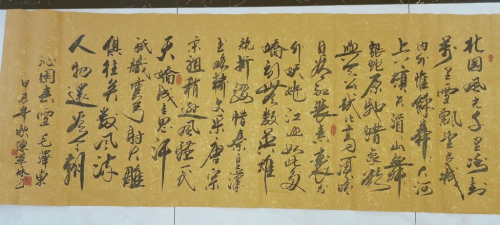 北国风光千里冰封
万里雪飘望长城
内外惟余莽莽大河
上下顿失滔滔山舞
银蛇原驰蜡象欲
与天公试比高须晴
日看红装素裹分
外妖娆江山如此多
娇引无数英雄
竞折腰惜秦皇汉
武略输文采唐宗
宋祖稍逊风骚一代
天骄成吉思汗
只识弯弓射大雕
俱往矣数风流
人物还看今朝
沁园春雪毛泽东
甲辰年秋陈